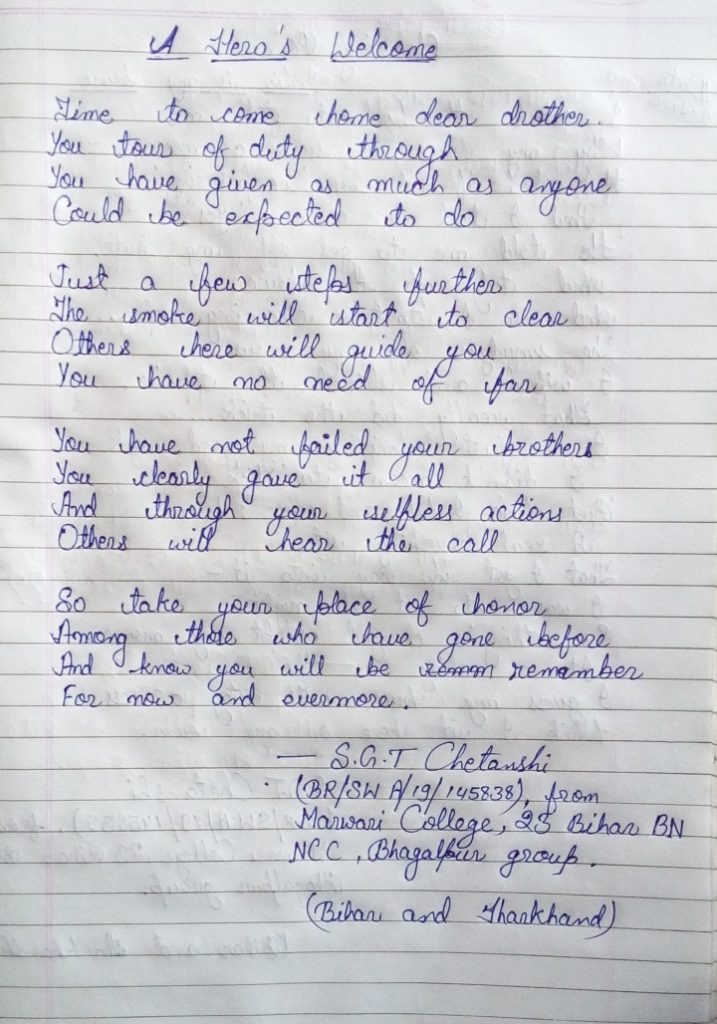 A Hero's Welcome
Time to come home dear drother.
You tour of duty through
You have given as much as anyone
Could be expected to do
Just a few steps further
The smoke will start to clear
Others here will guide you
You have no need of far
You have not failed your brothers
You clearly gave it all
And through your selfless actions
Others will hear the call
So take your place of honor
Among those who have gone before
And know you will be remember
For now and evermore.
— S.G.T Chetanshi
(BR/SW A/19/145838), from
Marwari College, 23 Bihar BN
NCC, Bhagalpur group.
(Bihar and Jharkhand)